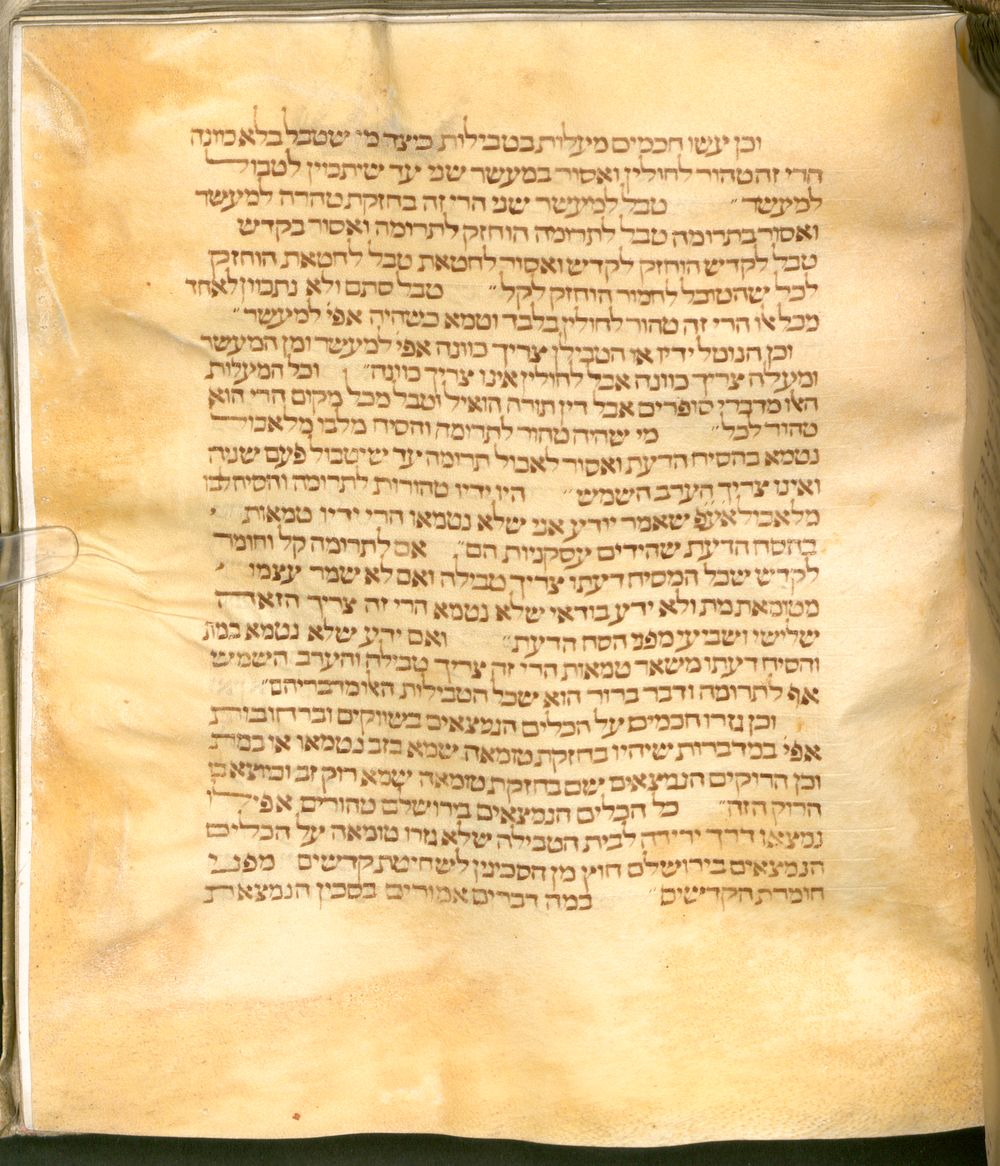 וכן עשו חכמים מעלות בטבילות כיצד מי שטבל בלא כוונה
הרי זה טהור לחולין ואסור במעשר שני עד שיתכוין לטבול
למעשר״ טבל למעשר שני הרי זה בחזקת טהרה למעשר
ואסור בתרומה טבל לתרומה הוחזק לתרומה ואסור בקדש
טבל לקדש הוחזק לקדש ואסור לחטאת טבל לחטאת הוחזק
לכל שהטובל לחמור הוחזק לקל״ טבל סתם ולא נתכוין לאחד
מכל אלו הרי זה טהור לחולין בלבד וטמא כשהיה אפי׳ למעשר״
וכן הנוטל ידיו או הטבילן צריך כוונה אפי׳ למעשר ומן המעשר
ומעלה צריך כוונה אבל לחולין אינו צריך כוונה״ וכל המעלות
האלו מדברי סופרים אבל דין תורה הואיל וטבל מכל מקום הרי הוא
טהור לכל״ מי שהיה טהור לתרומה והסיח מלבו מלאכול
נטמא בהסיח הדעת ואסור לאכול תרומה עד שיטבול פעם שניה
ואינו צריך הערב השמש״ היו ידיו טהורות לתרומה והסיח לבו
מלאכול אעפ שאמר יודע אני שלא נטמאו הרי ידיו טמאות
בהסח הדעת שהידים עסקניות הם״ אם לתרומה קל וחומר
לקדש שכל המסיח דעתו צריך טבילה ואם לא שמר עצמו
מטומאת מת ולא ידע בודאי שלא נטמא הרי זה צריך הזאה
שלישי ושביעי מפני הסח הדעת״ ואם ידע שלא נטמא במת
והסיח דעתו משאר טמאות הרי זה צריך טבילה והערב השמש
אף לתרומה ודבר ברור הוא שכל הטבילות האלו מדבריהם״
וכן גזרו חכמים על הכלים הנמצאים בשווקים וברחובות
אפי׳ במדברות שיהיו בחזקת טומאה שמא בזב נטמאו או במת
וכן הרוקים הנמצאים שם בחזקת טומאה שמא רוק זב וכיוצא בו
הרוק הזה״ כל הכלים הנמצאים בירושלם טהורים אפילו
נמצאו דרך ירידה לבית הטבילה שלא גזרו טומאה על הכלים
הנמצאים בירושלם חוץ מן הסכינין לשחיטת קדשים מפני
חומרת הקדשים״ במה דברים אמורים בסכין הנמצאת